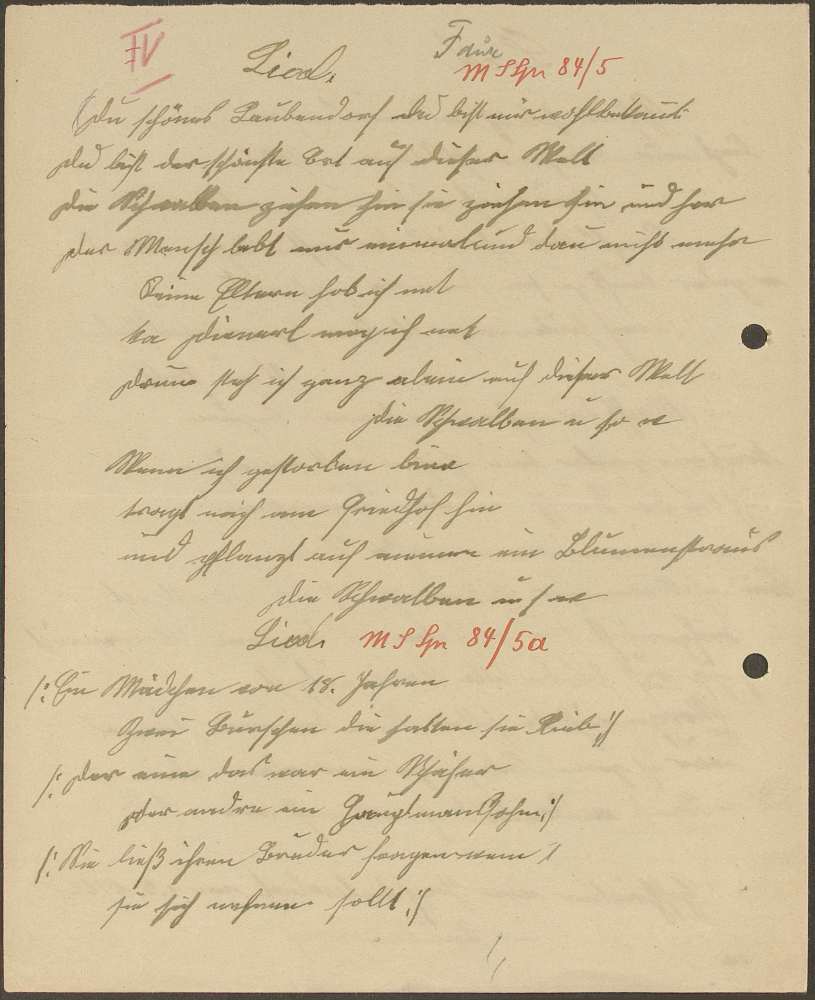 IV
Lied.
F dür
M S Spr 84/5
Du schönes Laubendorf du bist mir wohlbekant
du bist der schönste Ort auf dieser Welt
die Schwalben ziehen hin sie ziehen hin und her
der Mensch lebt nur einmal und dan nicht mehr
Keine Eltern hob ich net
ka Dienerl mag ich net
drum steh ich ganz alein auf dieser Welt
die Schwalben u so w
Wenn ich gestorben bin
tragt mich am Friedhof hin
und pflanzt auf meinem ein Blumenstraus
die Schwalben u s w
Lied. M S Spr 84/5a
/: Ein Mädchen von 18. Jahren
Zwei Burschen die hatten sie Lieb :/
/: der eine das war ein Schäfer
der andre ein Hauptmanssohn :/
/: Sie ließ ihren Bruder fragen wem
sie sich nehmen sollt :/